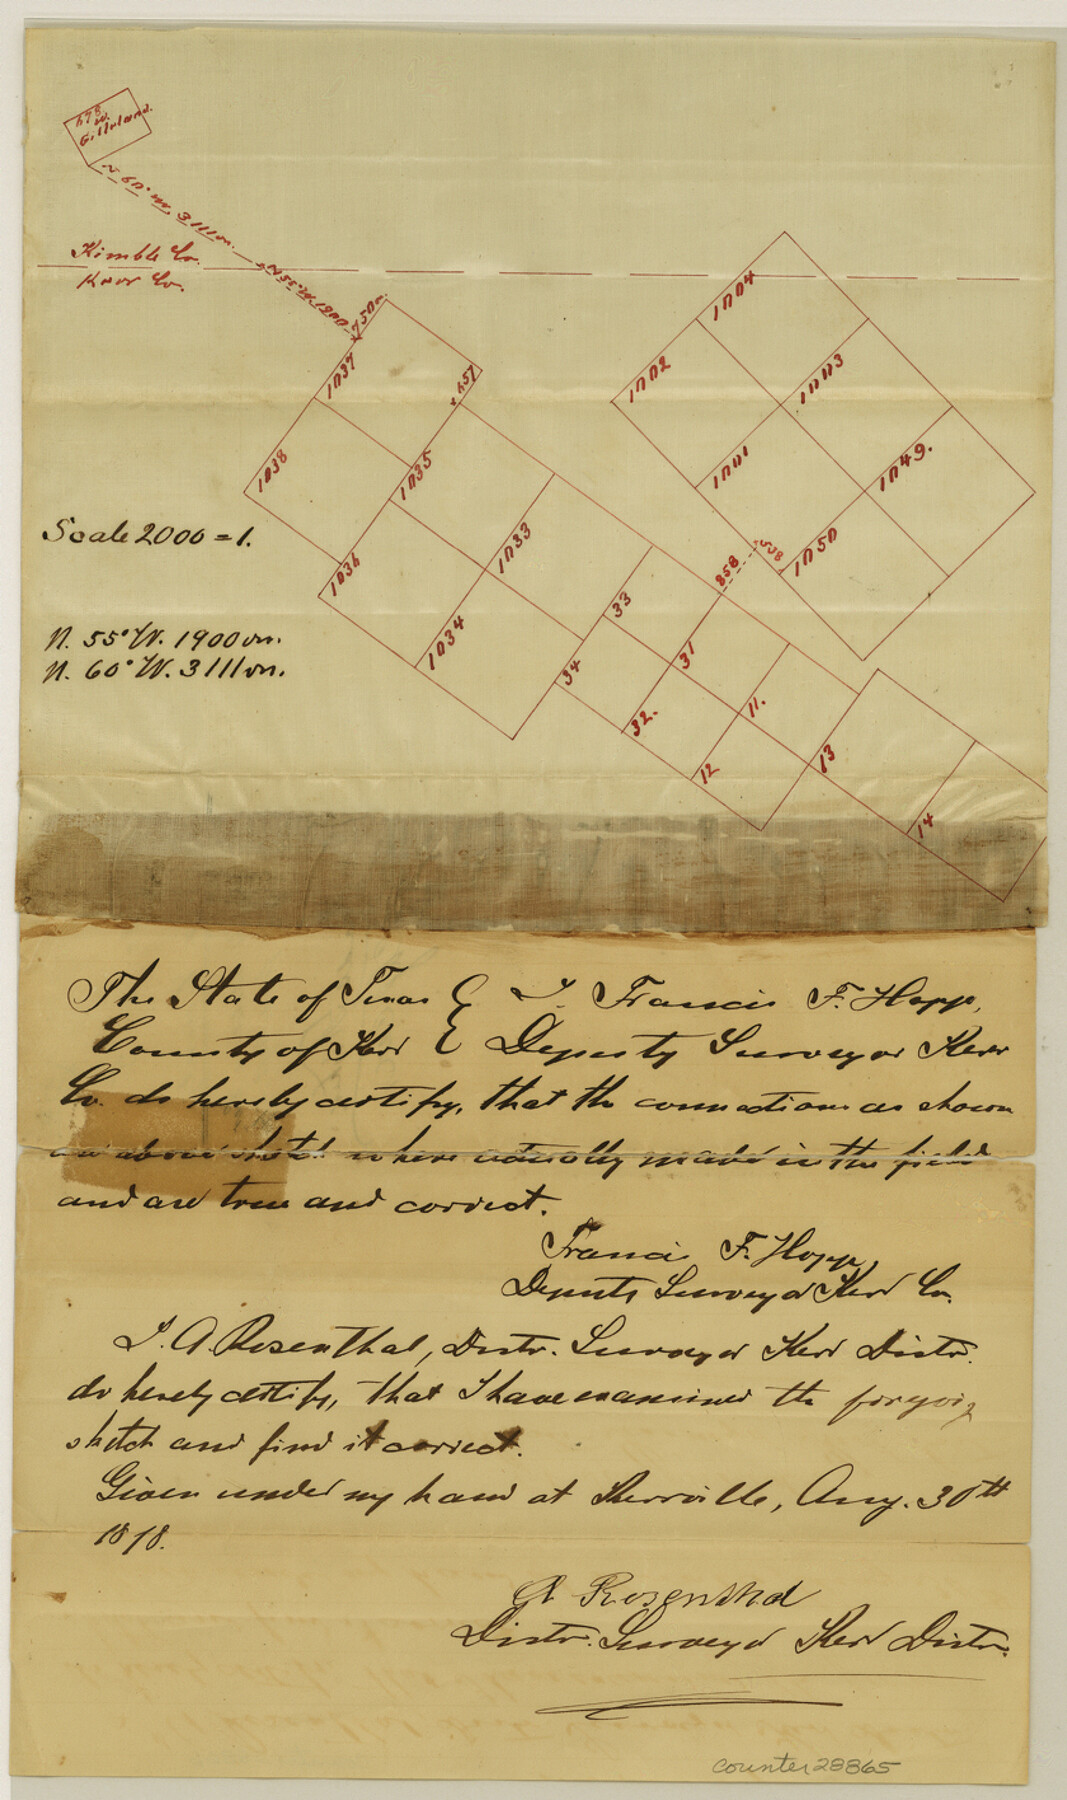 W.
Gilleland.
N 60° W. 3111 vr.
N 55° W. 1900
750
Kimble Co.
Kerr Co.
1004
1002
1003
1037
457
1001
1049.
1038
1035
Scale 2000 = 1.
1033
858
508
1050
1036
33
N. 55° W. 1900 vrs.
N. 60° W. 3111 vrs.
1034
34
31
32.
11.
12
13
14
The State of Texas I. Francis F. Hopp,
County of Kerr Deputy Surveyor Kerr
Co. do hereby certify, that the connections as shown
on above sketch where actually made in the field
and are true and correct.
Francis F. Hopp,
Deputy Surveyor Kerr Co.
I. A. Rosenthal, Distr. Surveyor Kerr Distr.
do hereby certify, that I have examined the forgoing
sketch and find it correct.
Given under my hand at Kerrville, Aug. 30th
1878.
A Rosenthal
Distr. Surveyor Kerr Distr.
counter 28865